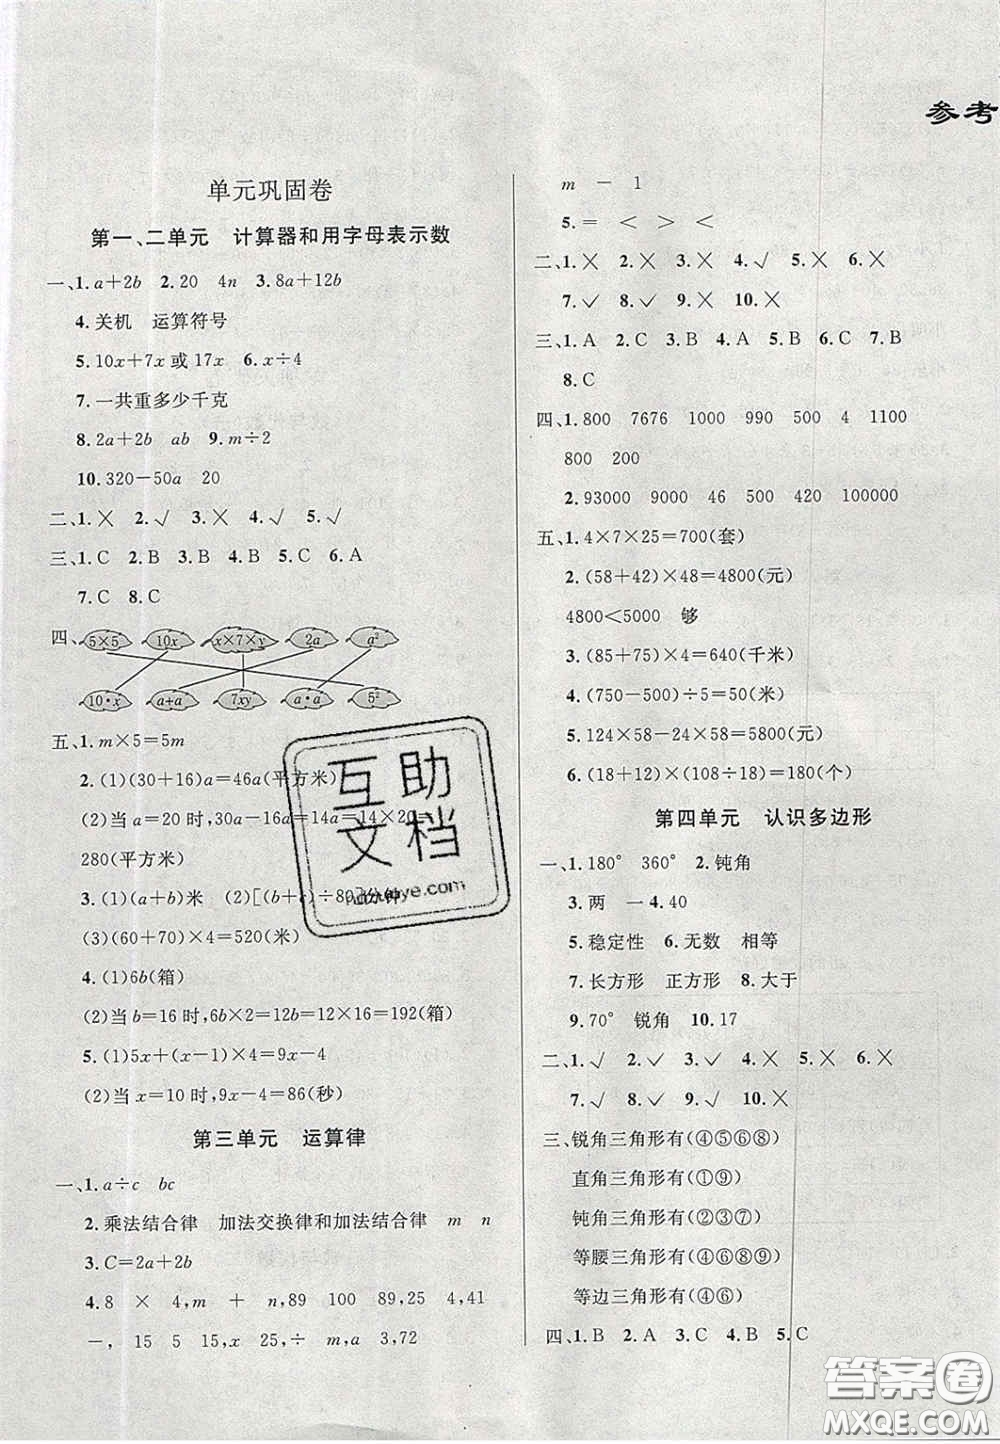 参考
单元巩固卷
第一、二单元 计算器和用字母表示数
一、1.a+2b 2.20 4n 3.8a+12b
4.关机 运算符号
5.10x+7x或17x 6.x÷4
7.一共重多少千克
8.2a+2b ab 9.m÷2
10.320-50a 20
二、1.× 2.√ 3.× 4.√ 5.√
三、1.C 2.B 3.B 4.B 5.B 6.A
7.C 8.C
四、5×5 10x x×7×y 2a a²
10·x a+a 7xy a·a 5²
五、1.m×5=5m
2.(1)(30+16)a=46a(平方米)
(2)当a=20时,30a-16a=14a=14×20=
280(平方米)
3.(1)(a+b)米 (2)[(b+c)÷80]分钟
(3)(60+70)×4=520(米)
4.(1)6b(箱)
(2)当b=16时,6b×2=12b=12×16=192(箱)
5.(1)5x+(x-1)×4=9x-4
(2)当x=10时,9x-4=86(秒)
第三单元 运算律
一、1.a÷c bc
2.乘法结合律 加法交换律和加法结合律 m n
3.C=2a+2b
4.8 × 4,m + n,89 100 89,25 4,41
-,15 5 15,x 25,÷ m,a 3,72
m - 1
5.= < > <
二、1.× 2.× 3.× 4.√ 5.× 6.×
7.√ 8.√ 9.× 10.×
三、1.A 2.C 3.B 4.A 5.B 6.C 7.B
8.C
四、1.800 7676 1000 990 500 4 1100
800 200
2.93000 9000 46 500 420 100000
五、1.4×7×25=700(套)
2.(58+42)×48=4800(元)
4800<5000 够
3.(85+75)×4=640(千米)
4.(750-500)÷5=50(米)
5.124×58-24×58=5800(元)
6.(18+12)×(108÷18)=180(个)
第四单元 认识多边形
一、1.180° 360° 2.钝角
3.两 一 4.40
5.稳定性 6.无数 相等
7.长方形 正方形 8.大于
9.70° 锐角 10.17
二、1.√ 2.√ 3.√ 4.× 5.× 6.×
7.√ 8.√ 9.√ 10.×
三、锐角三角形有(④⑤⑥⑧)
直角三角形有(①⑨)
钝角三角形有(②③⑦)
等腰三角形有(④⑤⑥⑧⑨)
等边三角形有(④⑥)
四、1.B 2.A 3.C 4.B 5.C
互助
文档
答案圈
MXQE.COM